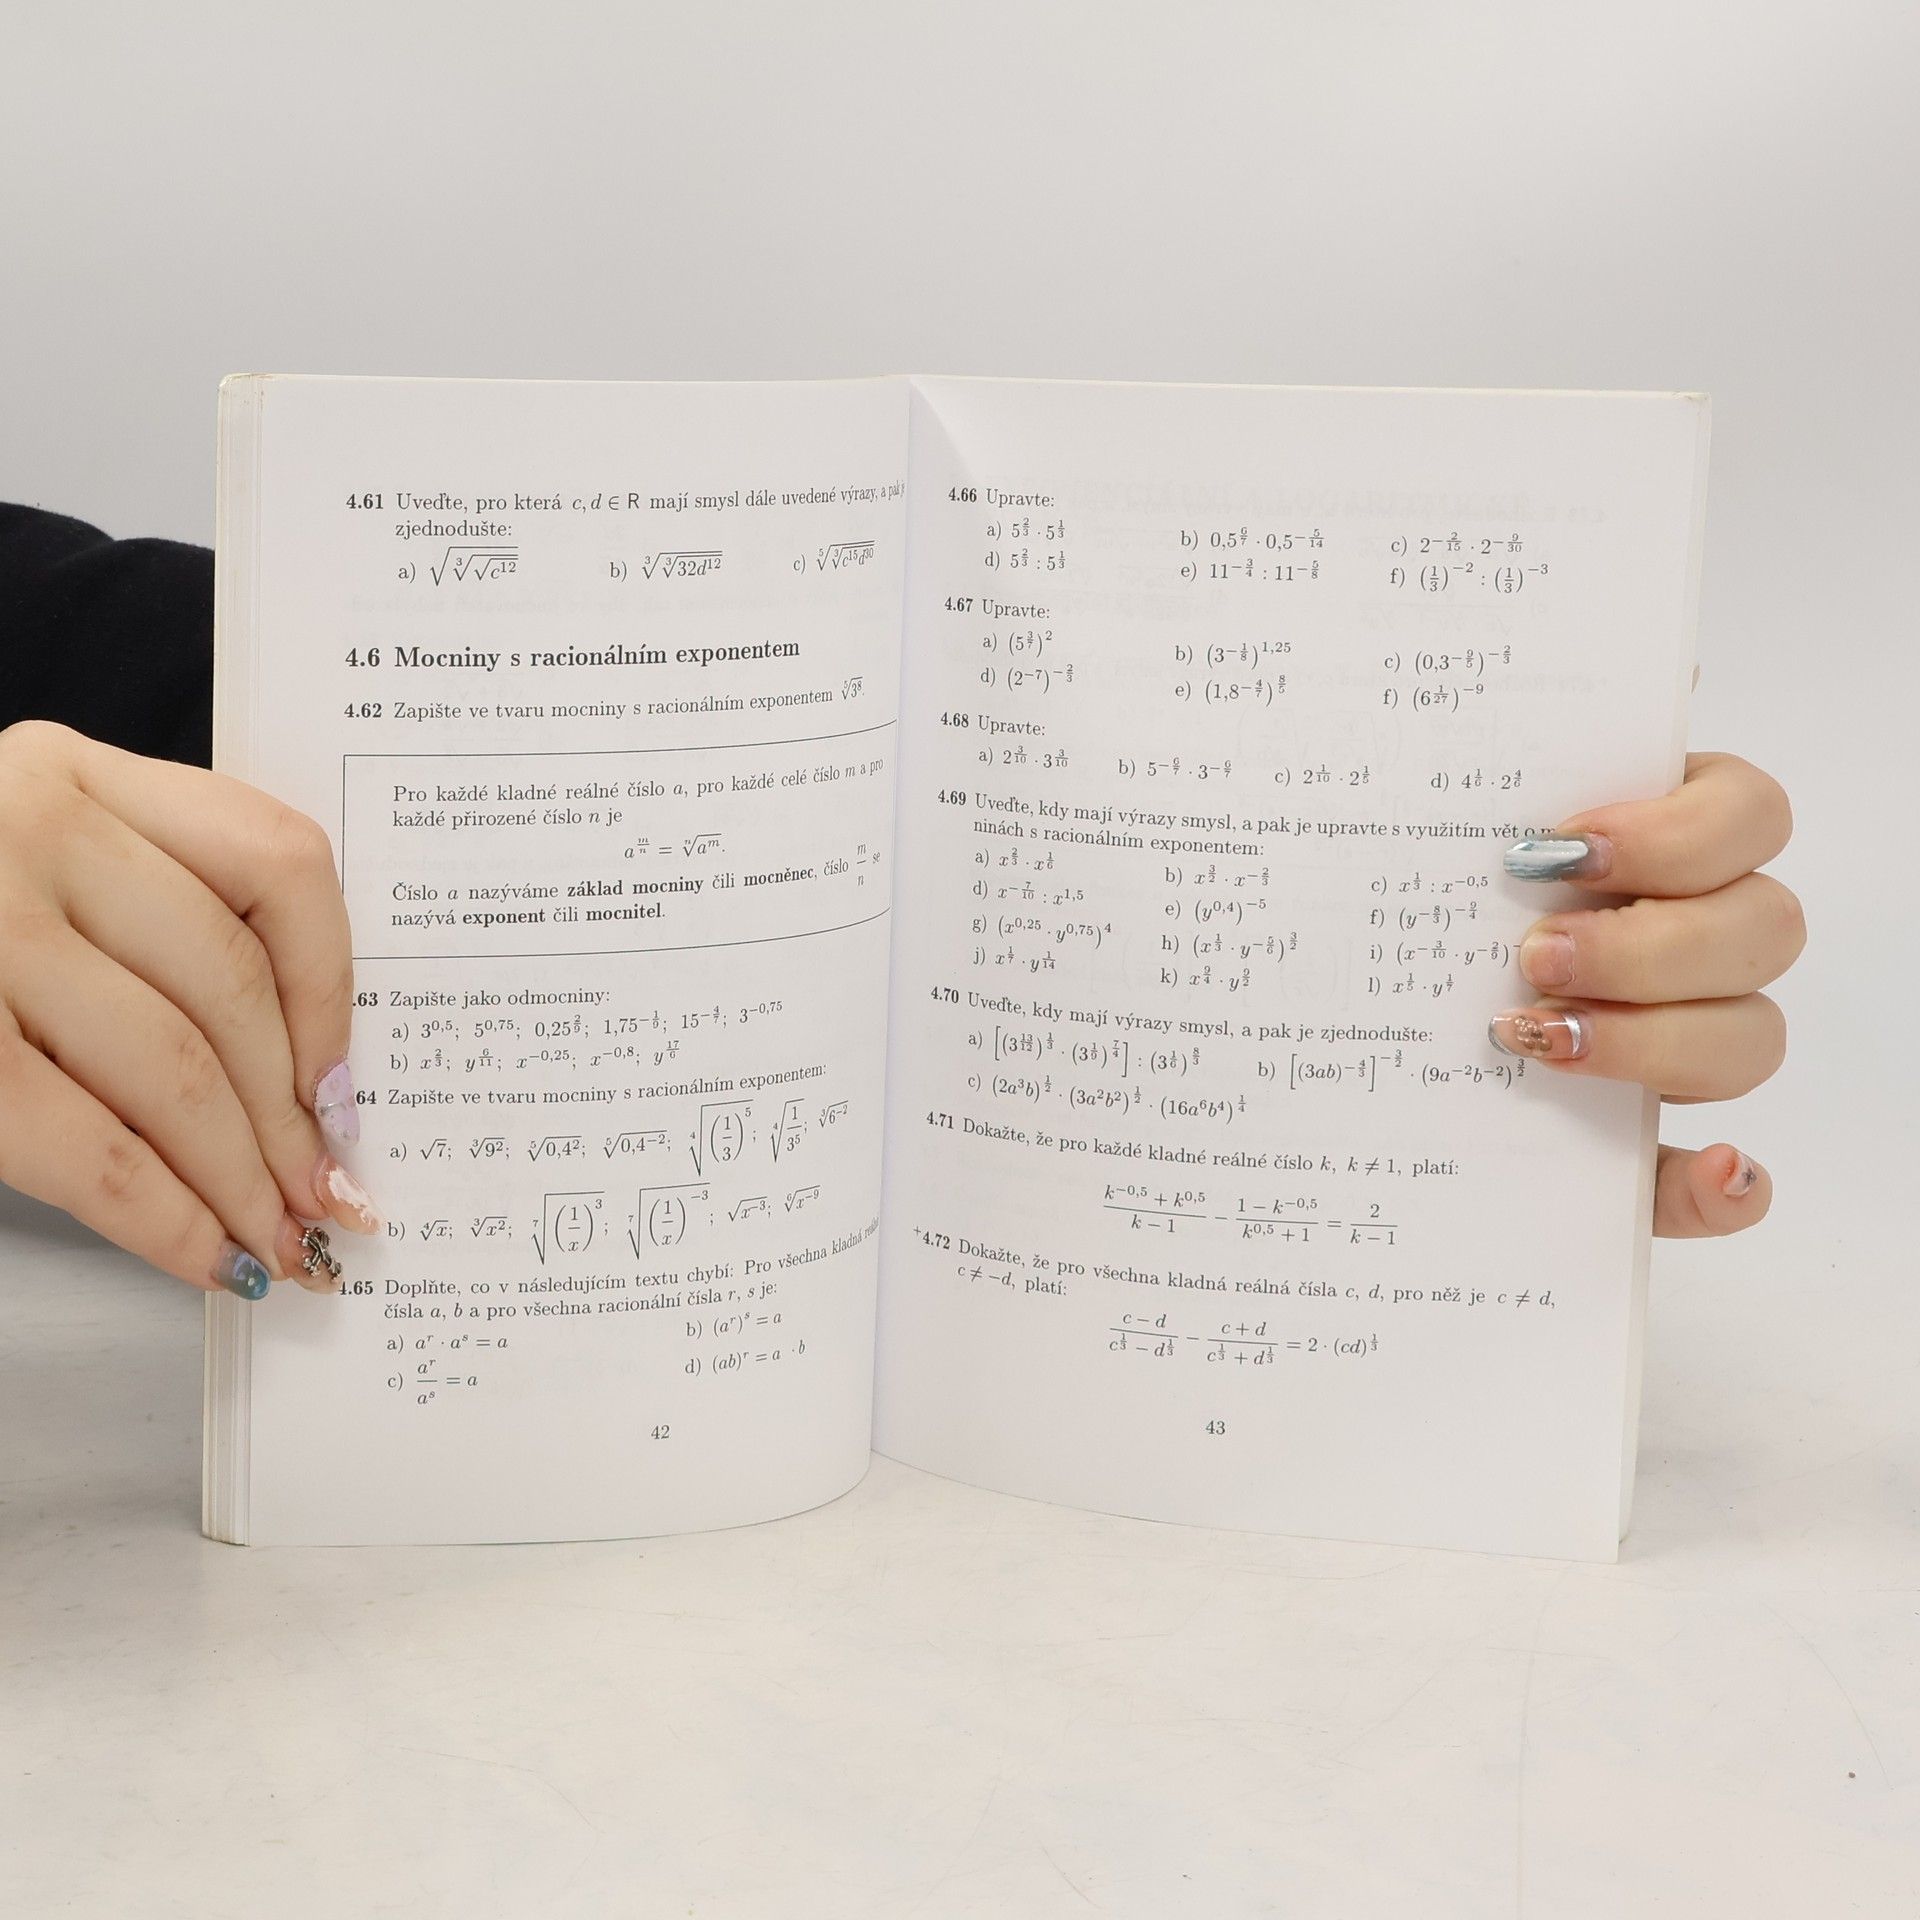 4.61 Uveďte, pro která c, d ∈ R mají smysl dále uvedené výrazy, a pak
zjednodušte:
a) √(∛(√(c¹²))) b) ∛(∛(32d¹²)) c) ⁵√(∛(c¹⁵d³⁰))
4.6 Mocniny s racionálním exponentem
4.62 Zapište ve tvaru mocniny s racionálním exponentem ⁵√(3⁸).
Pro každé kladné reálné číslo a, pro každé celé číslo m a pro
každé přirozené číslo n je
a^(m/n) = ⁿ√(a^m).
Číslo a nazýváme základ mocniny čili mocněnec, číslo m/n se
nazývá exponent čili mocnitel.
.63 Zapište jako odmocniny:
a) 3^(0,5); 5^(0,75); 0,25^(2/9); 1,75^(−1/9); 15^(−4/7); 3^(−0,75)
b) x^(2/3); y^(6/11); x^(−0,25); x^(−0,8); y^(17/6)
64 Zapište ve tvaru mocniny s racionálním exponentem:
a) √7; ∛(9²); ⁵√(0,4²); ⁵√(0,4⁻²); ⁴√((1/3)⁵); ⁴√(1/3⁵); ∛(6⁻²)
b) ⁴√x; ∛(x²); ⁷√((1/x)³); ⁷√((1/x)⁻³); √(x⁻³); ⁶√(x⁻⁹)
4.65 Doplňte, co v následujícím textu chybí: Pro všechna kladná
čísla a, b a pro všechna racionální čísla r, s je:
a) a^r · a^s = a b) (a^r)^s = a
c) a^r/a^s = a d) (ab)^r = a · b
42
4.66 Upravte:
a) 5^(2/3) · 5^(1/3) b) 0,5^(6/7) · 0,5^(−5/14) c) 2^(−2/15) · 2^(−9/30)
d) 5^(2/3) : 5^(1/3) e) 11^(−3/4) : 11^(−5/8) f) (1/3)^(−2) : (1/3)^(−3)
4.67 Upravte:
a) (5^(3/7))² b) (3^(−1/8))^(1,25) c) (0,3^(−9/5))^(−2/3)
d) (2^(−7))^(−2/3) e) (1,8^(−4/7))^(8/5) f) (6^(1/27))^(−9)
4.68 Upravte:
a) 2^(3/10) · 3^(3/10) b) 5^(−6/7) · 3^(−6/7) c) 2^(1/10) · 2^(1/5) d) 4^(1/6) · 2^(4/6)
4.69 Uveďte, kdy mají výrazy smysl, a pak je upravte s využitím vět o
ninách s racionálním exponentem:
a) x^(2/3) · x^(1/6) b) x^(3/2) · x^(−2/3) c) x^(1/3) : x^(−0,5)
d) x^(−7/10) : x^(1,5) e) (y^(0,4))^(−5) f) (y^(−8/3))^(−9/4)
g) (x^(0,25) · y^(0,75))⁴ h) (x^(1/3) · y^(−5/6))^(3/2) i) (x^(−3/10) · y^(−2/9))
j) x^(1/7) · y^(1/14) k) x^(9/4) · y^(9/2) l) x^(1/5) · y^(1/7)
4.70 Uveďte, kdy mají výrazy smysl, a pak je zjednodušte:
a) [(3^(13/12))^(1/3) · (3^(1/9))^(7/4)] : (3^(1/6))^(8/3) b) [(3ab)^(−4/3)]^(−3/2) · (9a⁻²b⁻²)^(3/2)
c) (2a³b)^(1/2) · (3a²b²)^(1/2) · (16a⁶b⁴)^(1/4)
4.71 Dokažte, že pro každé kladné reálné číslo k, k ≠ 1, platí:
(k^(−0,5) + k^(0,5))/(k − 1) − (1 − k^(−0,5))/(k^(0,5) + 1) = 2/(k − 1)
+4.72 Dokažte, že pro všechna kladná reálná čísla c, d, pro něž je c ≠ d,
c ≠ −d, platí:
(c − d)/(c^(1/3) − d^(1/3)) − (c + d)/(c^(1/3) + d^(1/3)) = 2 · (cd)^(1/3)
43